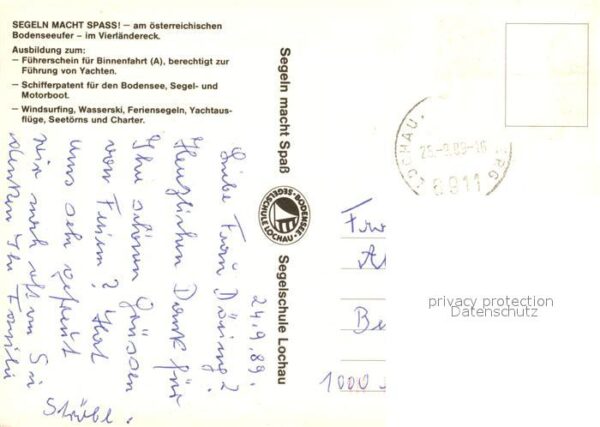 SEGELN MACHT SPASS! – am österreichischen
Bodenseeufer – im Vierländereck.
Ausbildung zum:
– Führerschein für Binnenfahrt (A), berechtigt zur
Führung von Yachten.
– Schifferpatent für den Bodensee, Segel- und
Motorboot.
– Windsurfing, Wasserski, Feriensegeln, Yachtaus-
flüge, Seetörns und Charter.
24.9.89.
Liebe Frau
Herzlichen Dank für
Ihre schönen Grüssen
von Ferien? Hat
uns sehr gefreut
wir noch oft an Sie
denken Ihr Familie
Ströbl.
Segeln macht Spaß
BODENSEE-SEGELSCHULE LOCHAU
Segelschule Lochau
LOCHAU,
25.-9.89-16
6911
1000
privacy protection
Datenschutz